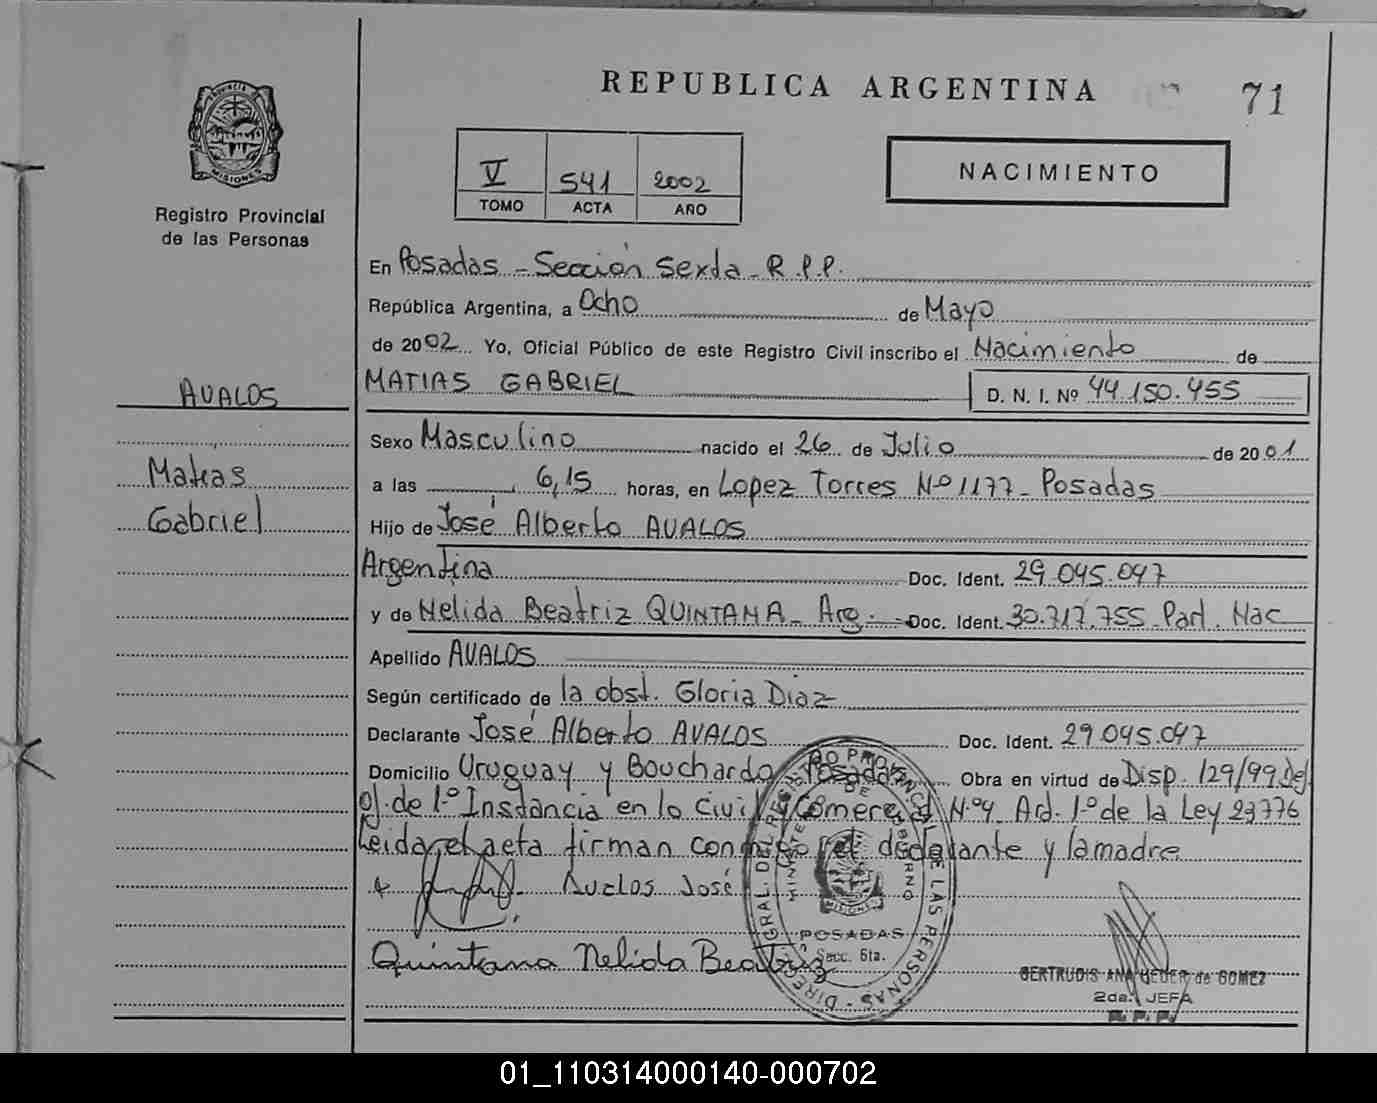 REPUBLICA ARGENTINA
71
PROVINCIA DE
MISIONES
Registro Provincial
de las Personas
V 541 2002
TOMO ACTA AÑO
NACIMIENTO
En Posadas - Sección Sexta - R.P.P.
República Argentina, a Ocho de Mayo
de 2002 Yo, Oficial Público de este Registro Civil inscribo el Nacimiento de
MATIAS GABRIEL D. N. I. Nº 44.150.455
AVALOS
Matías
Gabriel
Sexo Masculino nacido el 26 de Julio de 2001
a las 6,15 horas, en Lopez Torres Nº 1177 - Posadas
Hijo de José Alberto AVALOS
Argentina Doc. Ident. 29.045.047
y de Nelida Beatriz QUINTANA - Arg. - Doc. Ident. 30.717.755 Part. Nac
Apellido AVALOS
Según certificado de la obst. Gloria Diaz
Declarante José Alberto AVALOS Doc. Ident. 29.045.047
Domicilio Uruguay y Bouchardo Posadas Obra en virtud de Disp. 129/99 Def.
Of. de 1º Instancia en lo Civil y Comercial Nº 4 Art. 1º de la Ley 23776
Leida el acta firman conmigo el declarante y la madre
Avalos José
Quintana Nelida Beatriz
DIRECC. GRAL. DEL REGISTRO PROVINCIAL DE LAS PERSONAS
MINISTERIO DE GOBIERNO
MISIONES
POSADAS
Secc. 6ta.
GERTRUDIS ANA de GOMEZ
2da. JEFA
R.P.P.
01_110314000140-000702